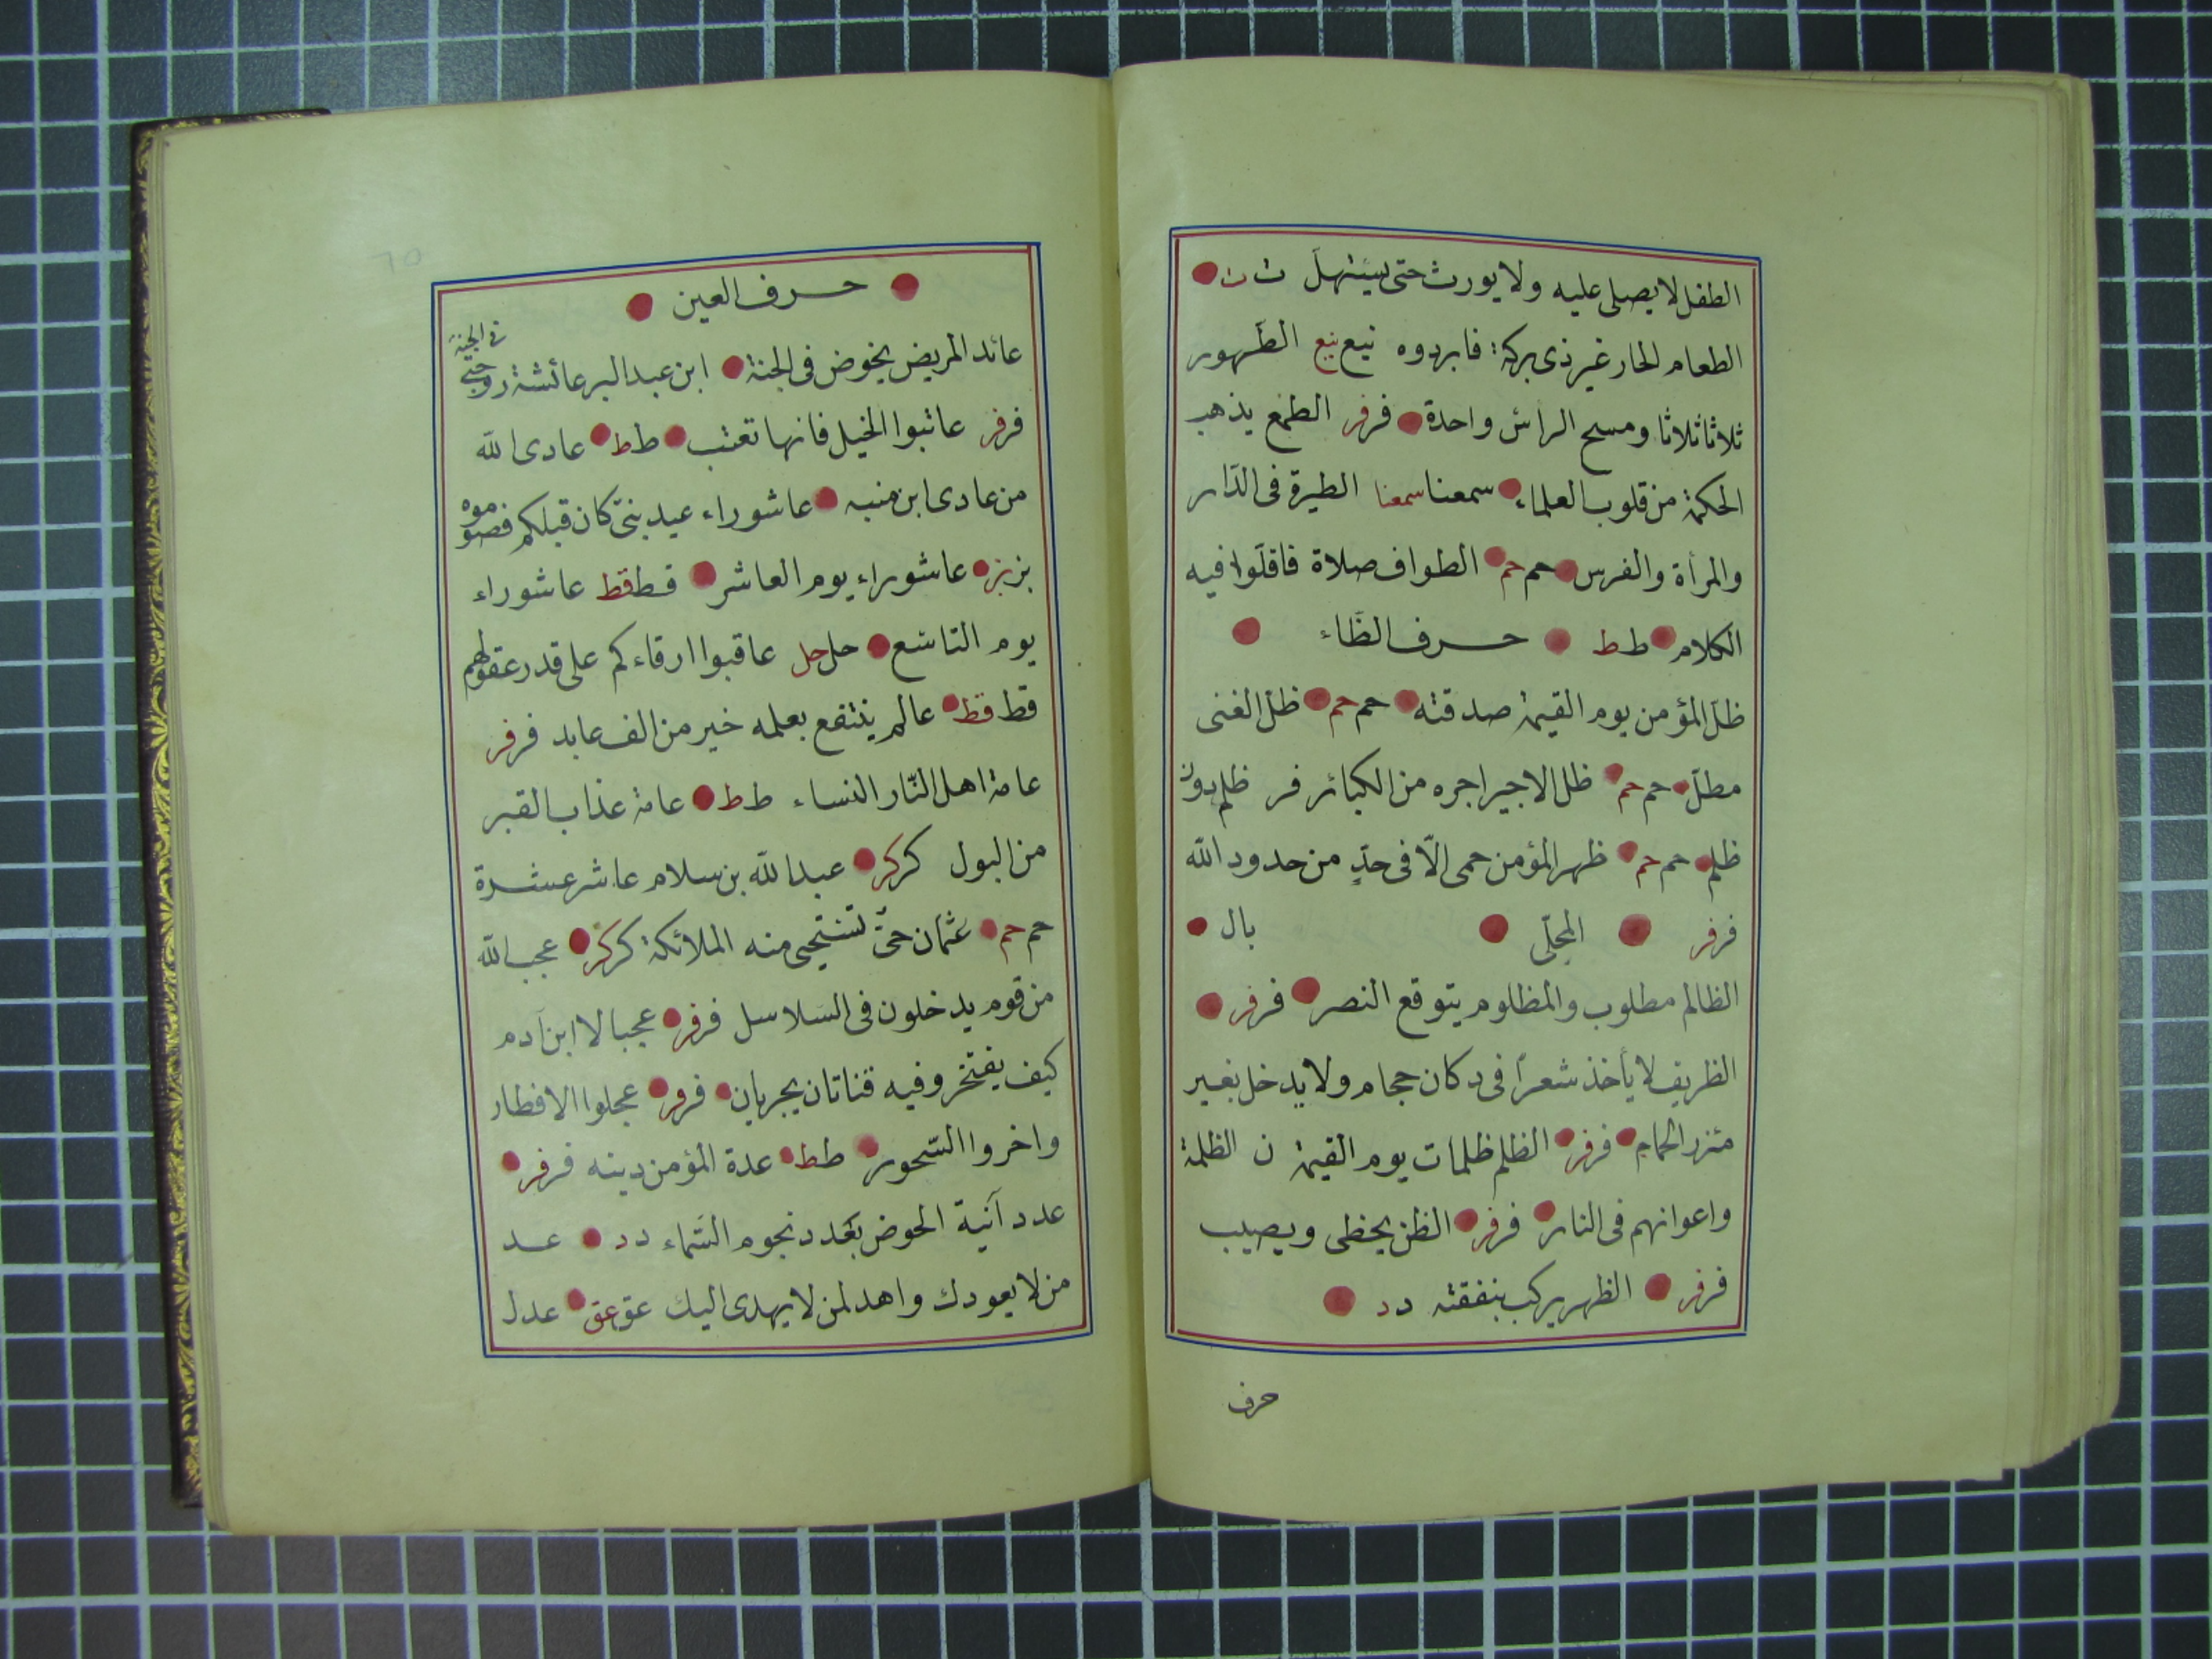 الطفل لا يصلى عليه ولا يورث حتى يستهلّ ت ت
الطعام الحار غير ذى بركة فابردوه نيع نيع الطهور
ثلاثا ثلاثا ومسح الراس واحدة فر فر الطمع يذهب
الحكمة من قلوب العلماء سمعنا سمعنا الطيرة فى الدّار
والمرأة والفرس حم حم الطواف صلاة فاقلّوا فيه
الكلام ط ط حرف الظّاء
ظلّ المؤمن يوم القيمة صدقته حم حم ظلّ الغنى
مطلّ حم حم ظلّ الاجير اجره من الكبائر فر ظلم دون
ظلم حم حم ظهر المؤمن حمى الّا فى حدٍّ من حدود الله
فر فر المحلّى بال
الظالم مطلوب والمظلوم يتوقع النصر فر فر
الظريف لا يأخذ شعراً فى دكان حجام ولا يدخل بغير
مئزر الحمام فر فر الظلم ظلمات يوم القيمة ن الظلمة
واعوانهم فى النار فر فر الظن يخطى ويصيب
فر فر الظهر يركب بنفقته د د
حرف
حرف العين
عائد المريض يخوض فى الجنة ابن عبد البر عائشة زوجتى فى الجنة
فر فر عاتبوا الخيل فانها تعتب ط ط عادى الله
من عادى ابن منبه عاشوراء عيد بنىّ كان قبلكم فصوموه
بز بز عاشوراء يوم العاشر قط قط عاشوراء
يوم التاسع حل حل عاقبوا ارقاءكم على قدر عقولهم
قط قط عالم ينتفع بعلمه خير من الف عابد فر فر
عامة اهل النّار النساء ط ط عامة عذاب القبر
من البول كر كر عبد الله بن سلام عاشر عشرة
حم حم عثمان حىّ تستحيى منه الملائكة كر كر عجب الله
من قوم يدخلون فى السّلاسل فر فر عجبا لا ابن آدم
كيف يفتخر وفيه قناتان يجريان فر فر عجلوا الافطار
واخروا السّحور ط ط عدة المؤمن دينه فر فر
عدد آنية الحوض بعدد نجوم السّماء د د عد
من لا يعودك واهد لمن لا يهدى اليك عق عق عدل